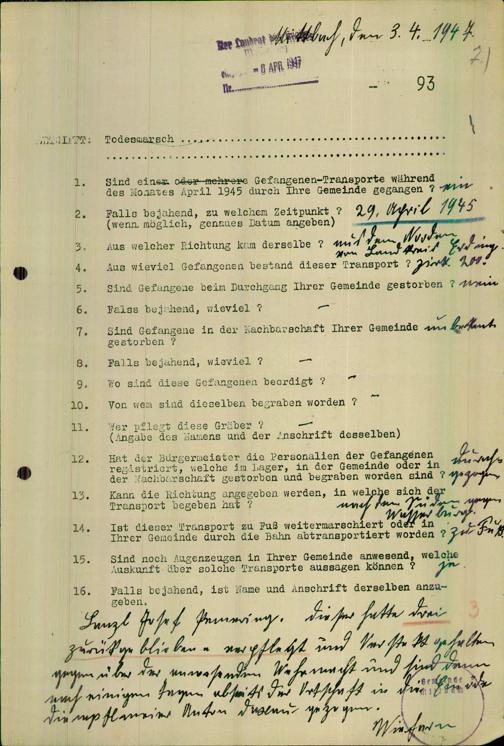 den 3. 4. 1947.
Der Landrat
- 8 APR. 1947
Nr.
- 93
Todesmarsch
1. Sind einen oder mehrere Gefangenen-Transporte während
des Monates April 1945 durch Ihre Gemeinde gegangen ? ein
2. Falls bejahend, zu welchem Zeitpunkt ? 29. April 1945
(wenn möglich, genaues Datum angeben)
3. Aus welcher Richtung kam derselbe ? aus dem Norden
von Landkreis Erding.
4. Aus wieviel Gefangenen bestand dieser Transport ? zirk 200.
5. Sind Gefangene beim Durchgang Ihrer Gemeinde gestorben ? nein
6. Falss bejahend, wieviel ? —
7. Sind Gefangene in der Nachbarschaft Ihrer Gemeinde unbekannt
gestorben ?
8. Falls bejahend, wieviel ? —
9. Wo sind diese Gefangenen beerdigt ? —
10. Von wem sind dieselben begraben worden ? —
11. Wer pflegt diese Gräber ? —
(Angabe des Namens und der Anschrift desselben)
12. Hat der Bürgermeister die Personalien der Gefangenen
registriert, welche im Lager, in der Gemeinde oder in
der Nachbarschaft gestorben und begraben worden sind ?
13. Kann die Richtung angegeben werden, in welche sich der
Transport begeben hat ? nach dem Süden gegen
Wasserburg.
14. Ist dieser Transport zu Fuß weitermarschiert oder in
Ihrer Gemeinde durch die Bahn abtransportiert worden ? zu Fuß
15. Sind noch Augenzeugen in Ihrer Gemeinde anwesend, welche
Auskunft über solche Transporte aussagen können ? ja
16. Falls bejahend, ist Name und Anschrift derselben anzu-
geben.
Lanzl Josef Pemering. dieser hatte drei
zurückgebliebene verpflegt und versteckt gehalten
gegenüber der anwesenden Wehrmacht und sind dann
nach einigen Tagen abseits der Ortschaft in
gezogen.